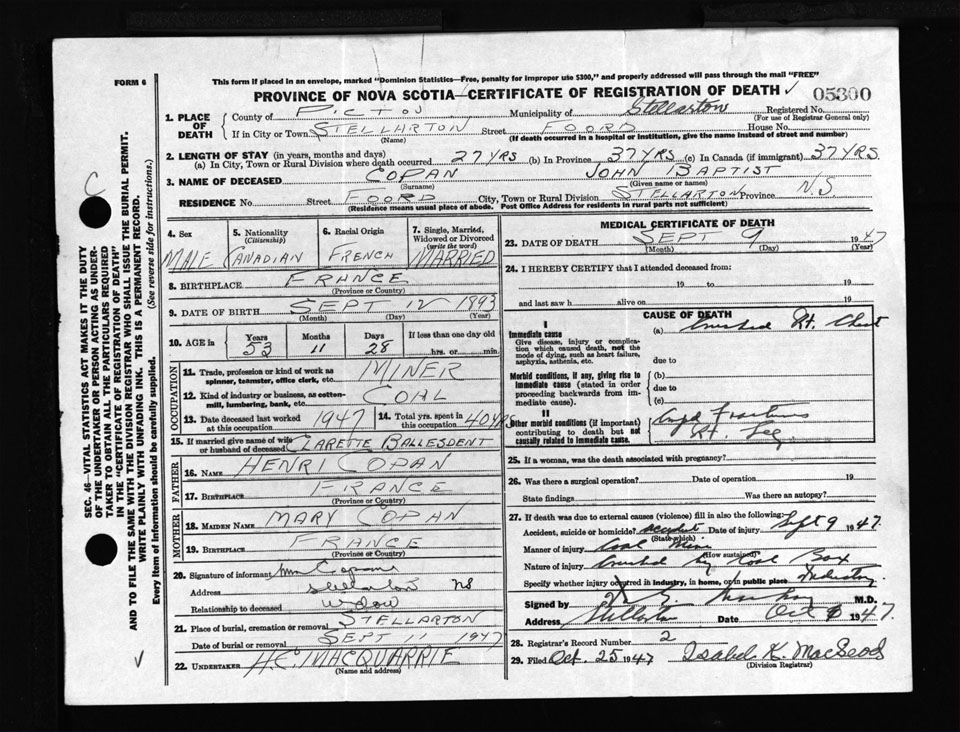 FORM 6
This form if placed in an envelope, marked "Dominion Statistics—Free, penalty for improper use $300," and properly addressed will pass through the mail "FREE"
PROVINCE OF NOVA SCOTIA—CERTIFICATE OF REGISTRATION OF DEATH ✓ 05300
1. PLACE OF DEATH
County of PICTOU Municipality of Stellarton Registered No.
(For use of Registrar General only)
If in City or Town STELLARTON Street FOORD House No.
(Name) (If death occurred in a hospital or institution, give the name instead of street and number)
2. LENGTH OF STAY (in years, months and days)
(a) In City, Town or Rural Division where death occurred 27 YRS (b) In Province 37 YRS (c) In Canada (if immigrant) 37 YRS.
3. NAME OF DECEASED COPAN JOHN BAPTIST
(Surname) (Given name or names)
RESIDENCE No. Street FOORD City, Town or Rural Division STELLARTON Province N.S
(Residence means usual place of abode. Post Office Address for residents in rural parts not sufficient)
4. Sex MALE
5. Nationality (Citizenship) CANADIAN
6. Racial Origin FRENCH
7. Single, Married, Widowed or Divorced (write the word) MARRIED
8. BIRTHPLACE FRANCE
(Province or Country)
9. DATE OF BIRTH SEPT 12 1893
(Month) (Day) (Year)
10. AGE in Years 53 Months 11 Days 28 If less than one day old hrs. or min.
OCCUPATION
11. Trade, profession or kind of work as spinner, teamster, office clerk, etc. MINER
12. Kind of industry or business, as cotton-mill, lumbering, bank, etc. COAL
13. Date deceased last worked at this occupation 1947
14. Total yrs. spent in this occupation 40 YRS
15. If married give name of wife or husband of deceased CLARETTE BALLESDENT
FATHER
16. NAME HENRI COPAN
17. BIRTHPLACE FRANCE
(Province or Country)
MOTHER
18. MAIDEN NAME MARY COPAN
19. BIRTHPLACE FRANCE
(Province or Country)
20. Signature of informant
Address Stellarton NS
Relationship to deceased widow
21. Place of burial, cremation or removal STELLARTON
Date of burial or removal SEPT 11 1947
22. UNDERTAKER H.C. MACQUARRIE
(Name and address)
MEDICAL CERTIFICATE OF DEATH
23. DATE OF DEATH SEPT 9 1947
(Month) (Day) (Year)
24. I HEREBY CERTIFY that I attended deceased from:
19 to 19
and last saw h alive on 19
CAUSE OF DEATH
I
Immediate cause
Give disease, injury or complication which caused death, not the mode of dying, such as heart failure, asphyxia, asthenia, etc.
(a) Crushed Rt. Chest
due to
Morbid conditions, if any, giving rise to immediate cause (stated in order proceeding backwards from immediate cause).
(b)
due to
(c)
II
Other morbid conditions (if important) contributing to death but not causally related to immediate cause.
Cmpd Fractures
Rt. Leg
25. If a woman, was the death associated with pregnancy?
26. Was there a surgical operation? Date of operation 19
State findings Was there an autopsy?
27. If death was due to external causes (violence) fill in also the following:
Accident, suicide or homicide? accident Date of injury Sept 9 1947.
(State which)
Manner of injury Coal Mine
(How sustained)
Nature of injury Crushed by Coal Box
Specify whether injury occurred in industry, in home, or in public place Industry.
Signed by M.D.
Address Stellarton Date Oct 1947.
28. Registrar's Record Number 2
29. Filed Oct. 25 1947 Isabel K. MacLeod
(Division Registrar)
SEC. 46—VITAL STATISTICS ACT MAKES IT THE DUTY
OF THE UNDERTAKER OR PERSON ACTING AS UNDER-
TAKER TO OBTAIN ALL THE PARTICULARS REQUIRED
IN THE "CERTIFICATE OF REGISTRATION OF DEATH"
AND TO FILE THE SAME WITH THE DIVISION REGISTRAR WHO SHALL ISSUE THE BURIAL PERMIT.
WRITE PLAINLY WITH UNFADING INK. THIS IS A PERMANENT RECORD.
Every item of Information should be carefully supplied. (See reverse side for instructions.)
C
✓